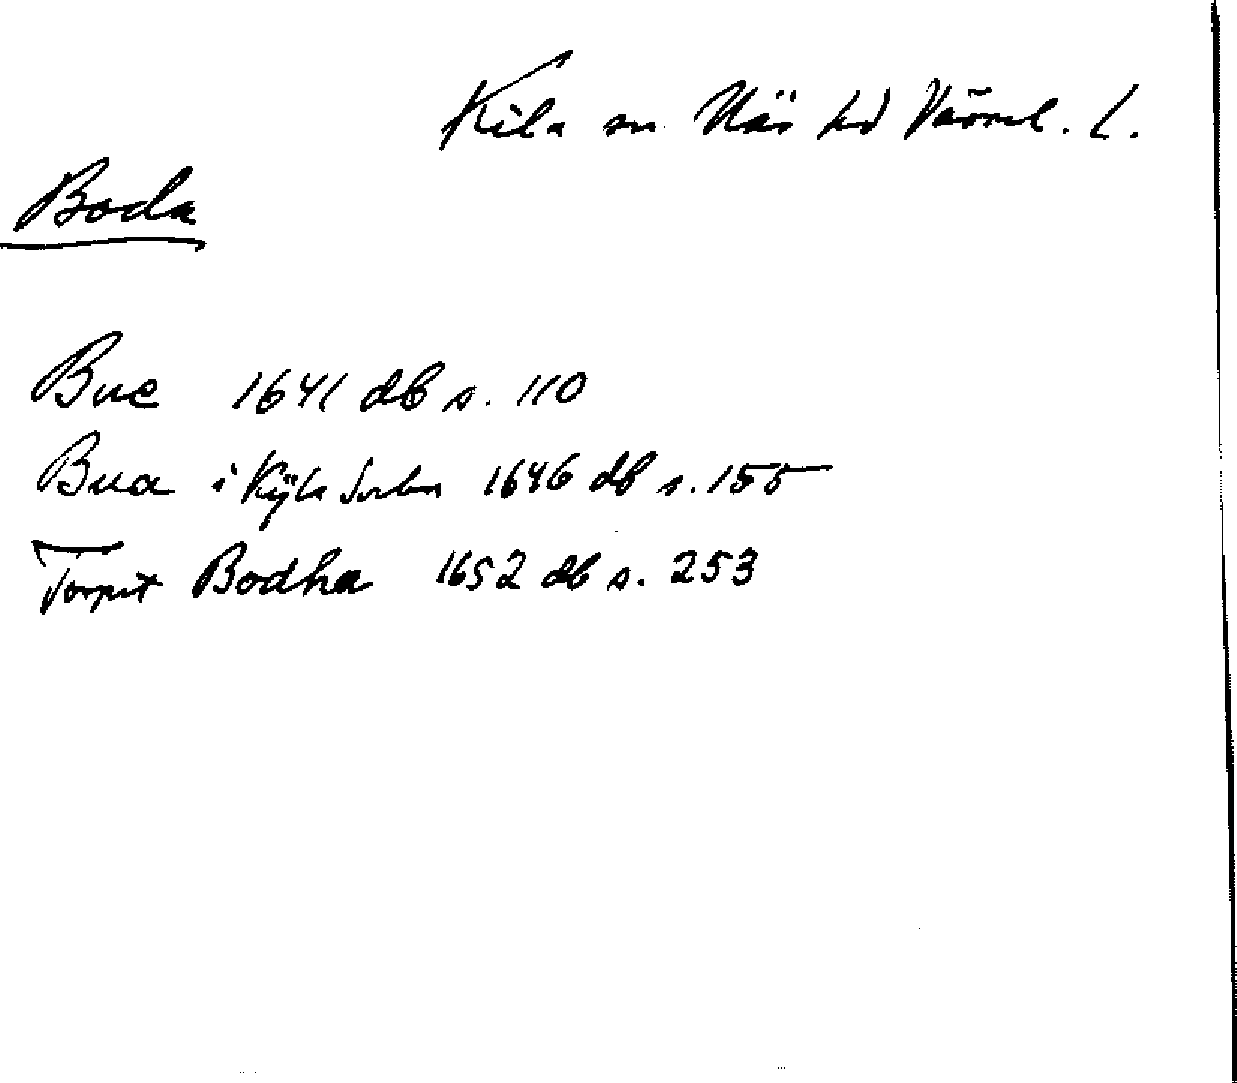 Kila sn Näs hd Värml. l.
Boda
Bue 1641 db s. 110
Bua i Kÿla 1646 db s. 155
Torpit Bodha 1652 db s. 253